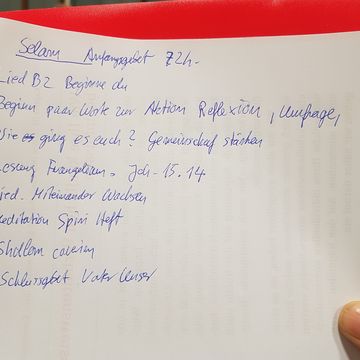 Selam Anfangsgebet 72h-
Lied B2 Beginne du
Beginn paar Worte zur Aktion Reflexion, Umfrage,
Wie es ging es euch? Gemeinschaf stärken
Lesung Evangelium. Joh. 15.14
Lied. Miteinander Wachsen
Meditation Spiri Heft
Shallom
Schlussgebet Vater Unser